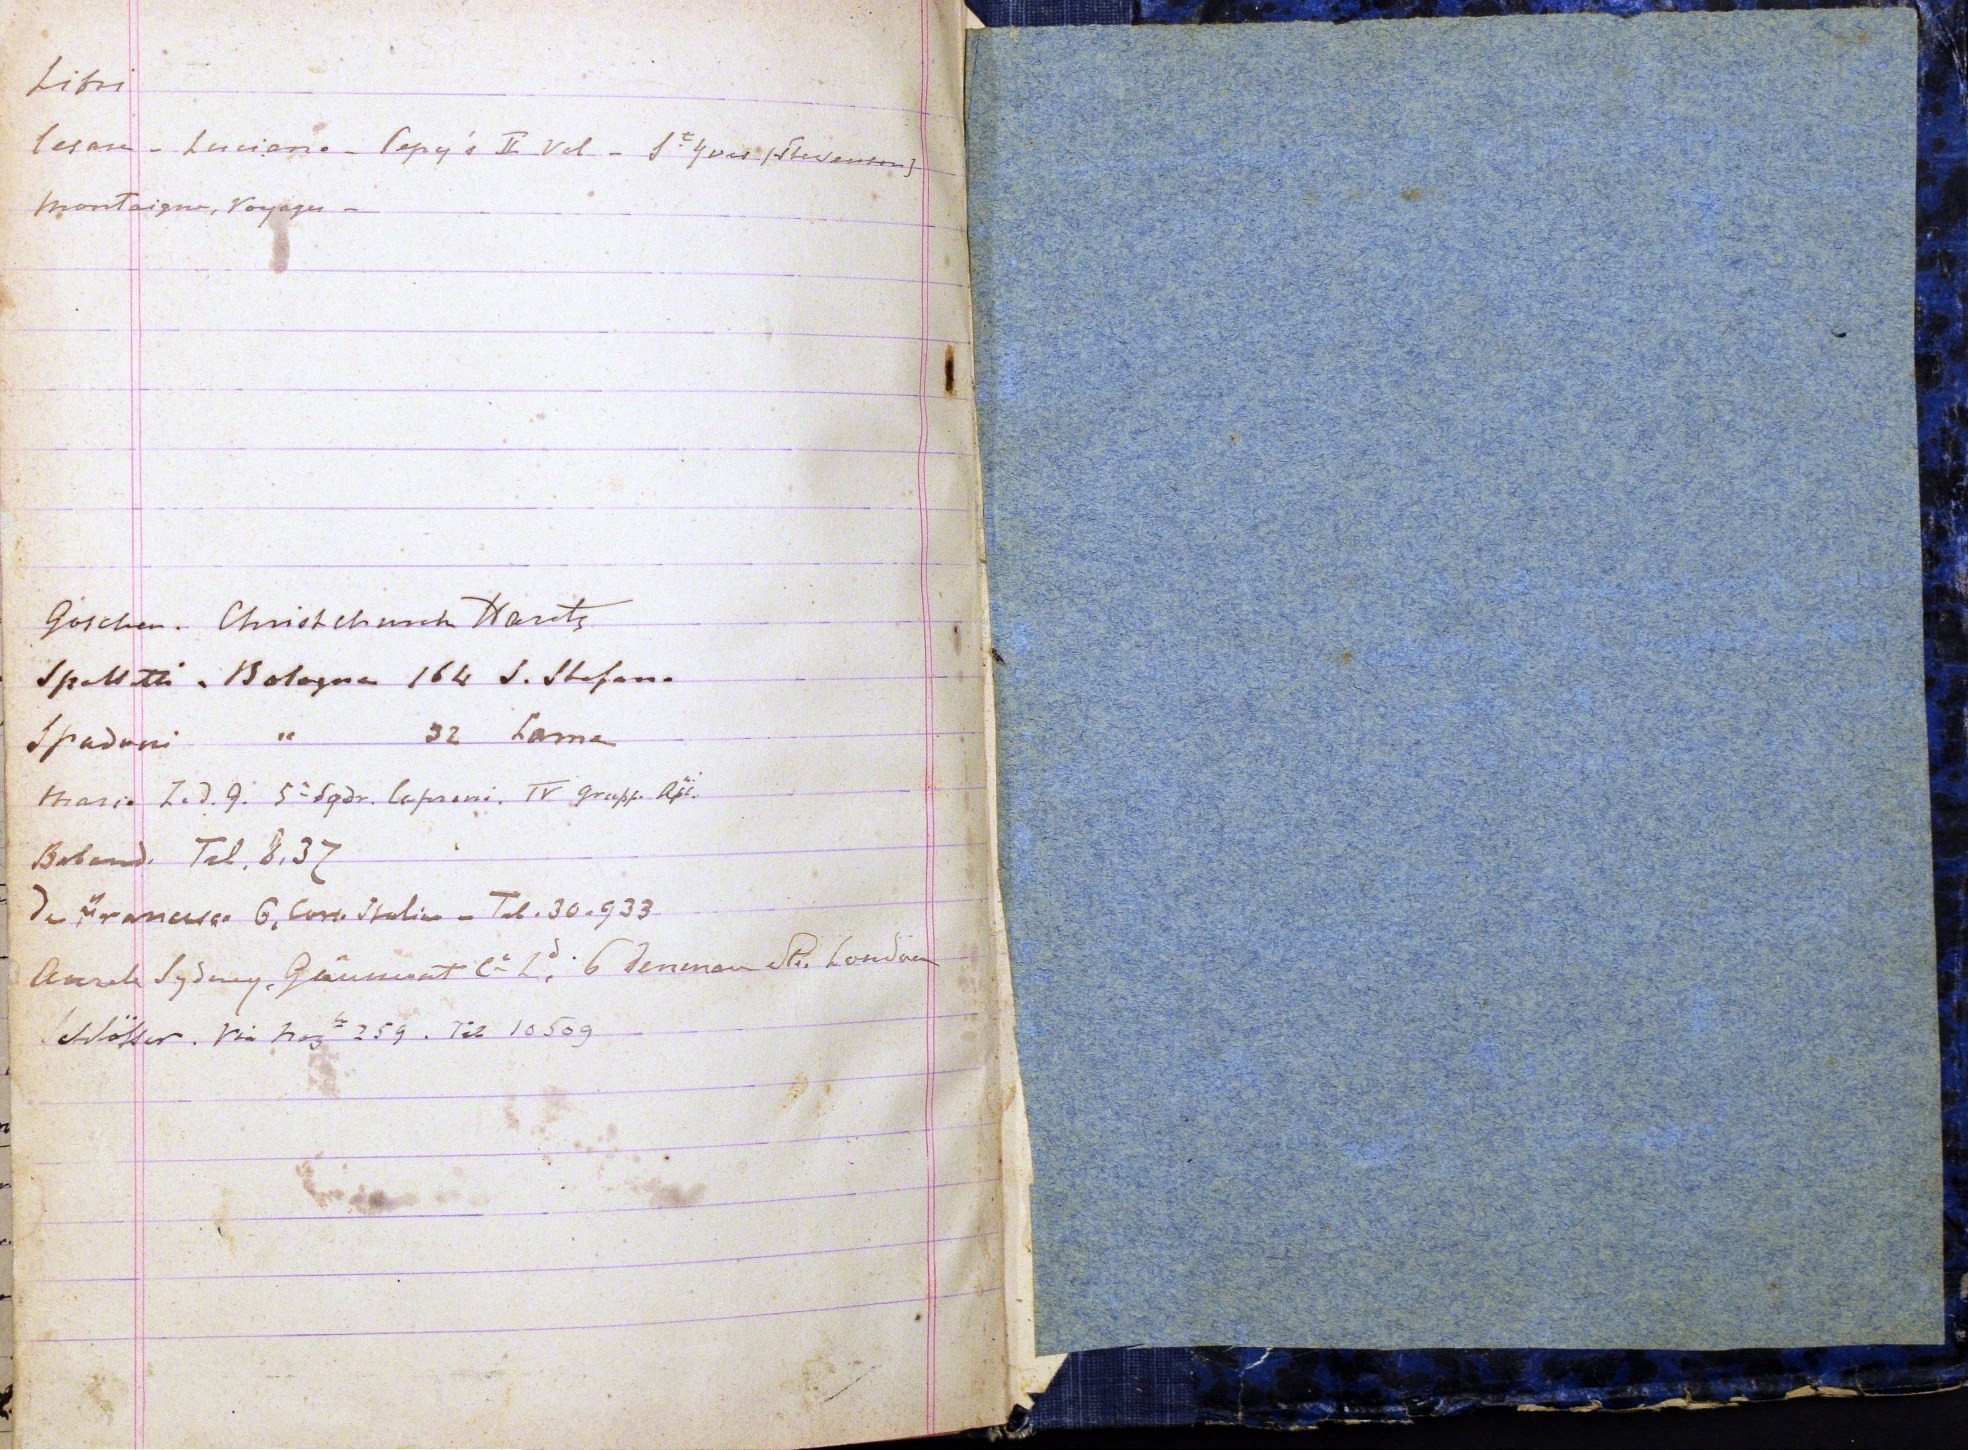 Libri
Cesare - Luciano - Pepy's II Vol - St Yves (Stevenson)
Montaigne, Voyages -
Goschen. Christchurch Hants
Spalletti. Bologna 164 S. Stefano
Spadoni " 32 Lame
Mario Z.d.G. 5a Sqdr. Caproni. IV Gruppo
Tel. 8.37
De Francesco 6, Corso Italia - Tel. 30.933
Aurele Sydney, Gaumont Co Ld. 6 Denman St. London
Via 259. Tel 10509